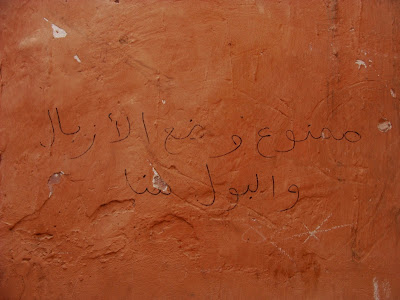 ممنوع وضع الأزبال
والبول هنا